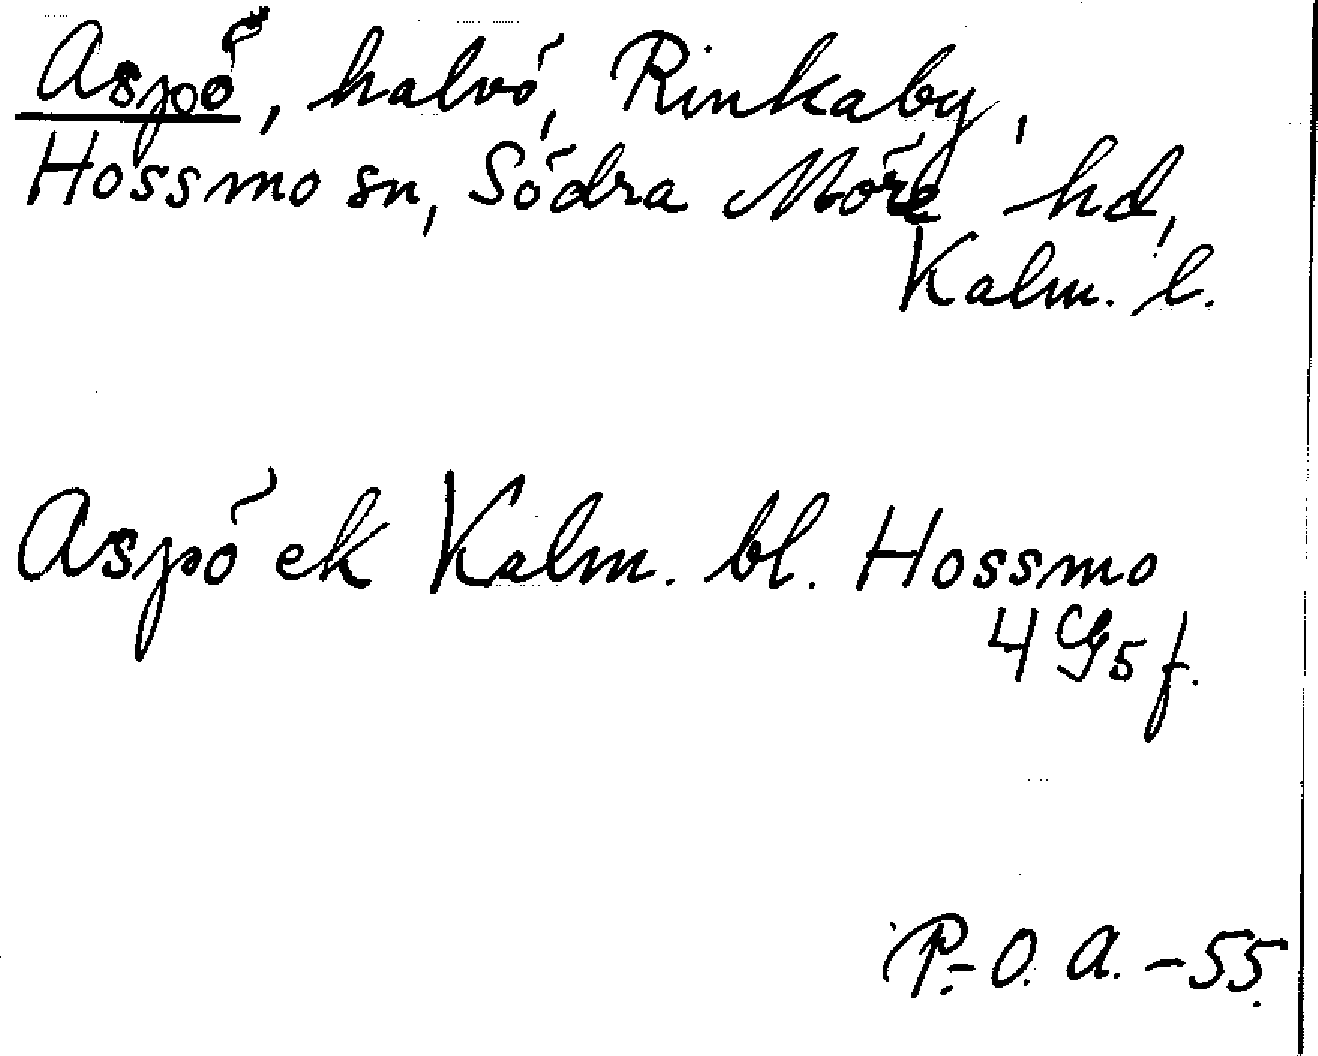 Aspö, halvö, Rinkaby,
Hossmo sn, Södra Möre hd,
Kalm. l.
Aspö ek Kalm. bl. Hossmo
4 G5 f.
P.-O. A. -55.